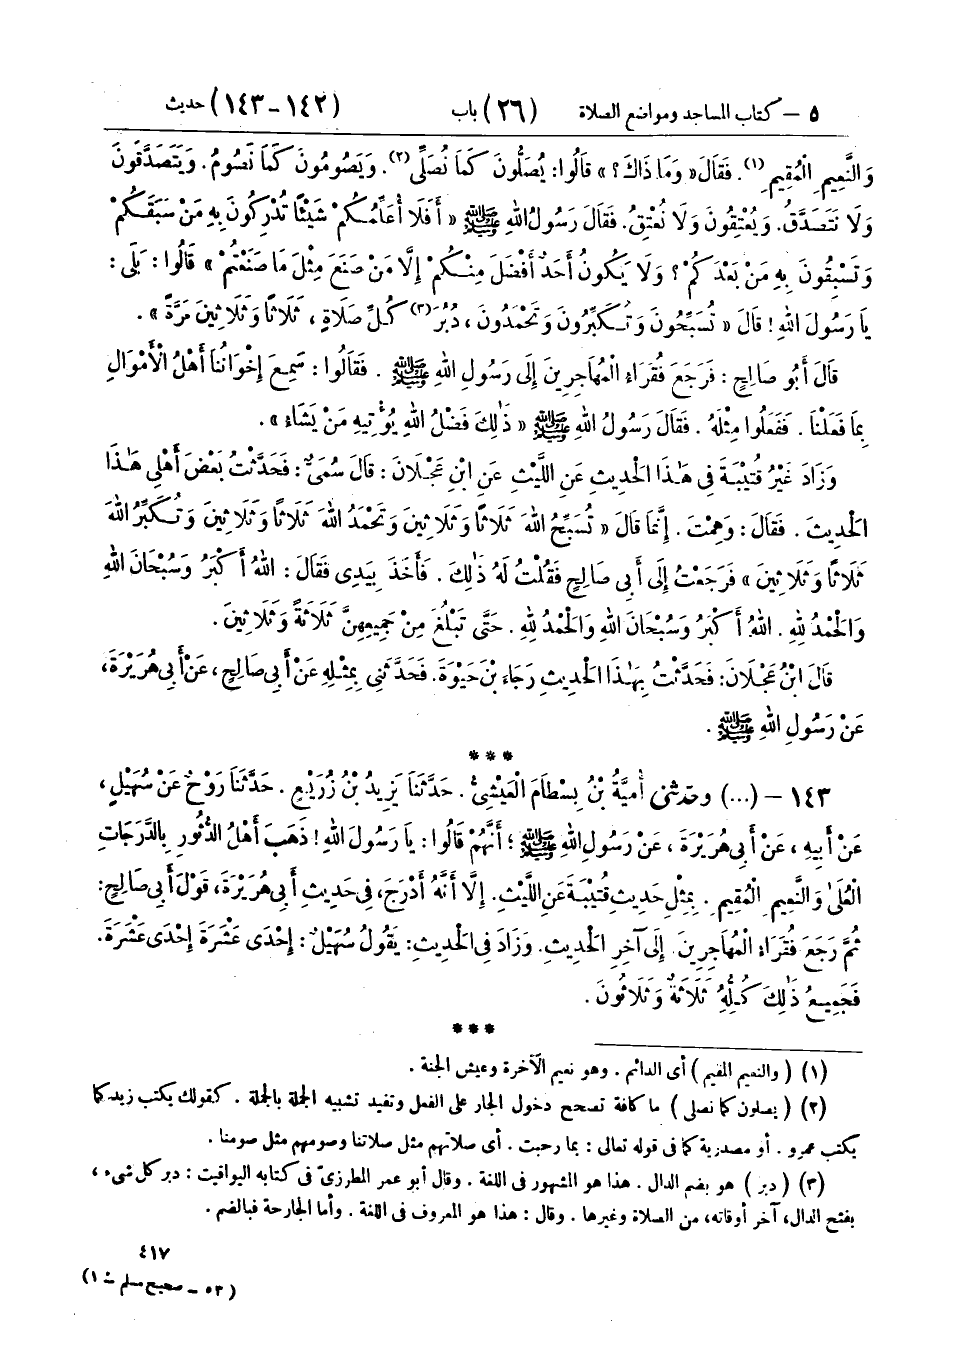 ٥ — كتاب المساجد ومواضع الصلاة (٢٦) باب (١٤٢ - ١٤٣) حديث
وَالنَّعِيمِ الْمُقِيمِ(١). فَقَالَ « وَمَا ذَاكَ؟ » قَالُوا: يُصَلُّونَ كَمَا نُصَلِّي(٢). وَيَصُومُونَ كَمَا نَصُومُ. وَيَتَصَدَّقُونَ
وَلَا نَتَصَدَّقُ. وَيُعْتِقُونَ وَلَا نُعْتِقُ. فَقَالَ رَسُولُ اللهِ ﷺ « أَفَلَا أُعَلِّمُكُمْ شَيْئًا تُدْرِكُونَ بِهِ مَنْ سَبَقَكُمْ
وَتَسْبِقُونَ بِهِ مَنْ بَعْدَكُمْ؟ وَلَا يَكُونُ أَحَدٌ أَفْضَلَ مِنْكُمْ إِلَّا مَنْ صَنَعَ مِثْلَ مَا صَنَعْتُمْ » قَالُوا: بَلَى:
يَا رَسُولَ اللهِ! قَالَ « تُسَبِّحُونَ وَتُكَبِّرُونَ وَتَحْمَدُونَ، دُبُرَ(٣) كُلِّ صَلَاةٍ، ثَلَاثًا وَثَلَاثِينَ مَرَّةً ».
قَالَ أَبُو صَالِحٍ: فَرَجَعَ فُقَرَاءُ الْمُهَاجِرِينَ إِلَى رَسُولِ اللهِ ﷺ. فَقَالُوا: سَمِعَ إِخْوَانُنَا أَهْلُ الْأَمْوَالِ
بِمَا فَعَلْنَا. فَفَعَلُوا مِثْلَهُ. فَقَالَ رَسُولُ اللهِ ﷺ « ذَٰلِكَ فَضْلُ اللهِ يُؤْتِيهِ مَنْ يَشَاءُ ».
وَزَادَ غَيْرُ قُتَيْبَةَ فِي هَٰذَا الْحَدِيثِ عَنِ اللَّيْثِ عَنِ ابْنِ عَجْلَانَ: قَالَ سُمَيٌّ: فَحَدَّثْتُ بَعْضَ أَهْلِي هَٰذَا
الْحَدِيثَ. فَقَالَ: وَهِمْتَ. إِنَّمَا قَالَ « تُسَبِّحُ اللهَ ثَلَاثًا وَثَلَاثِينَ وَتَحْمَدُ اللهَ ثَلَاثًا وَثَلَاثِينَ وَتُكَبِّرُ اللهَ
ثَلَاثًا وَثَلَاثِينَ » فَرَجَعْتُ إِلَى أَبِي صَالِحٍ فَقُلْتُ لَهُ ذَٰلِكَ. فَأَخَذَ بِيَدِي فَقَالَ: اللهُ أَكْبَرُ وَسُبْحَانَ اللهِ
وَالْحَمْدُ لِلهِ. اللهُ أَكْبَرُ وَسُبْحَانَ اللهِ وَالْحَمْدُ لِلهِ. حَتَّى تَبْلُغَ مِنْ جَمِيعِهِنَّ ثَلَاثَةً وَثَلَاثِينَ.
قَالَ ابْنُ عَجْلَانَ: فَحَدَّثْتُ بِهَٰذَا الْحَدِيثِ رَجَاءَ بْنَ حَيْوَةَ. فَحَدَّثَنِي بِمِثْلِهِ عَنْ أَبِي صَالِحٍ، عَنْ أَبِي هُرَيْرَةَ،
عَنْ رَسُولِ اللهِ ﷺ.
***
١٤٣ — (...) وحدثني أُمَيَّةُ بْنُ بِسْطَامَ الْعَيْشِيُّ. حَدَّثَنَا يَزِيدُ بْنُ زُرَيْعٍ. حَدَّثَنَا رَوْحٌ عَنْ سُهَيْلٍ،
عَنْ أَبِيهِ، عَنْ أَبِي هُرَيْرَةَ، عَنْ رَسُولِ اللهِ ﷺ؛ أَنَّهُمْ قَالُوا: يَا رَسُولَ اللهِ! ذَهَبَ أَهْلُ الدُّثُورِ بِالدَّرَجَاتِ
الْعُلَى وَالنَّعِيمِ الْمُقِيمِ. بِمِثْلِ حَدِيثِ قُتَيْبَةَ عَنِ اللَّيْثِ. إِلَّا أَنَّهُ أَدْرَجَ، فِي حَدِيثِ أَبِي هُرَيْرَةَ، قَوْلَ أَبِي صَالِحٍ:
ثُمَّ رَجَعَ فُقَرَاءُ الْمُهَاجِرِينَ. إِلَى آخِرِ الْحَدِيثِ. وَزَادَ فِي الْحَدِيثِ: يَقُولُ سُهَيْلٌ: إِحْدَى عَشْرَةَ إِحْدَى عَشْرَةَ.
فَجَمِيعُ ذَٰلِكَ كُلِّهِ ثَلَاثَةٌ وَثَلَاثُونَ.
***
(١) ( والنعيم المقيم ) أى الدائم. وهو نعيم الآخرة وعيش الجنة.
(٢) ( يصلون كما نصلى ) ما كافة تصحح دخول الجار على الفعل وتفيد تشبيه الجملة بالجملة. كقولك يكتب زيد كما
يكتب عمرو. أو مصدرية كما فى قوله تعالى: بما رحبت. أى صلاتهم مثل صلاتنا وصومهم مثل صومنا.
(٣) ( دبر ) هو بضم الدال. هذا هو المشهور فى اللغة. وقال أبو عمر المطرزىّ فى كتابه اليواقيت: دبر كل شىء،
بفتح الدال، آخر أوقاته، من الصلاة وغيرها. وقال: هذا هو المعروف فى اللغة. وأما الجارحة فبالضم.
٤١٧
(٥٣ — صحيح مسلم — ١)